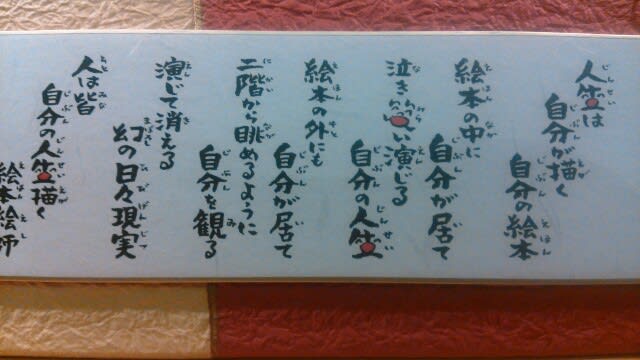 人生は
自分が描く
自分の絵本
絵本の中に
自分が居て
泣き 演じる
自分の人生
絵本の外にも
自分が居て
二階から眺めるように
自分を観る
演じて消える
幻の日々現実
人は皆
自分の人生描く
絵本絵師